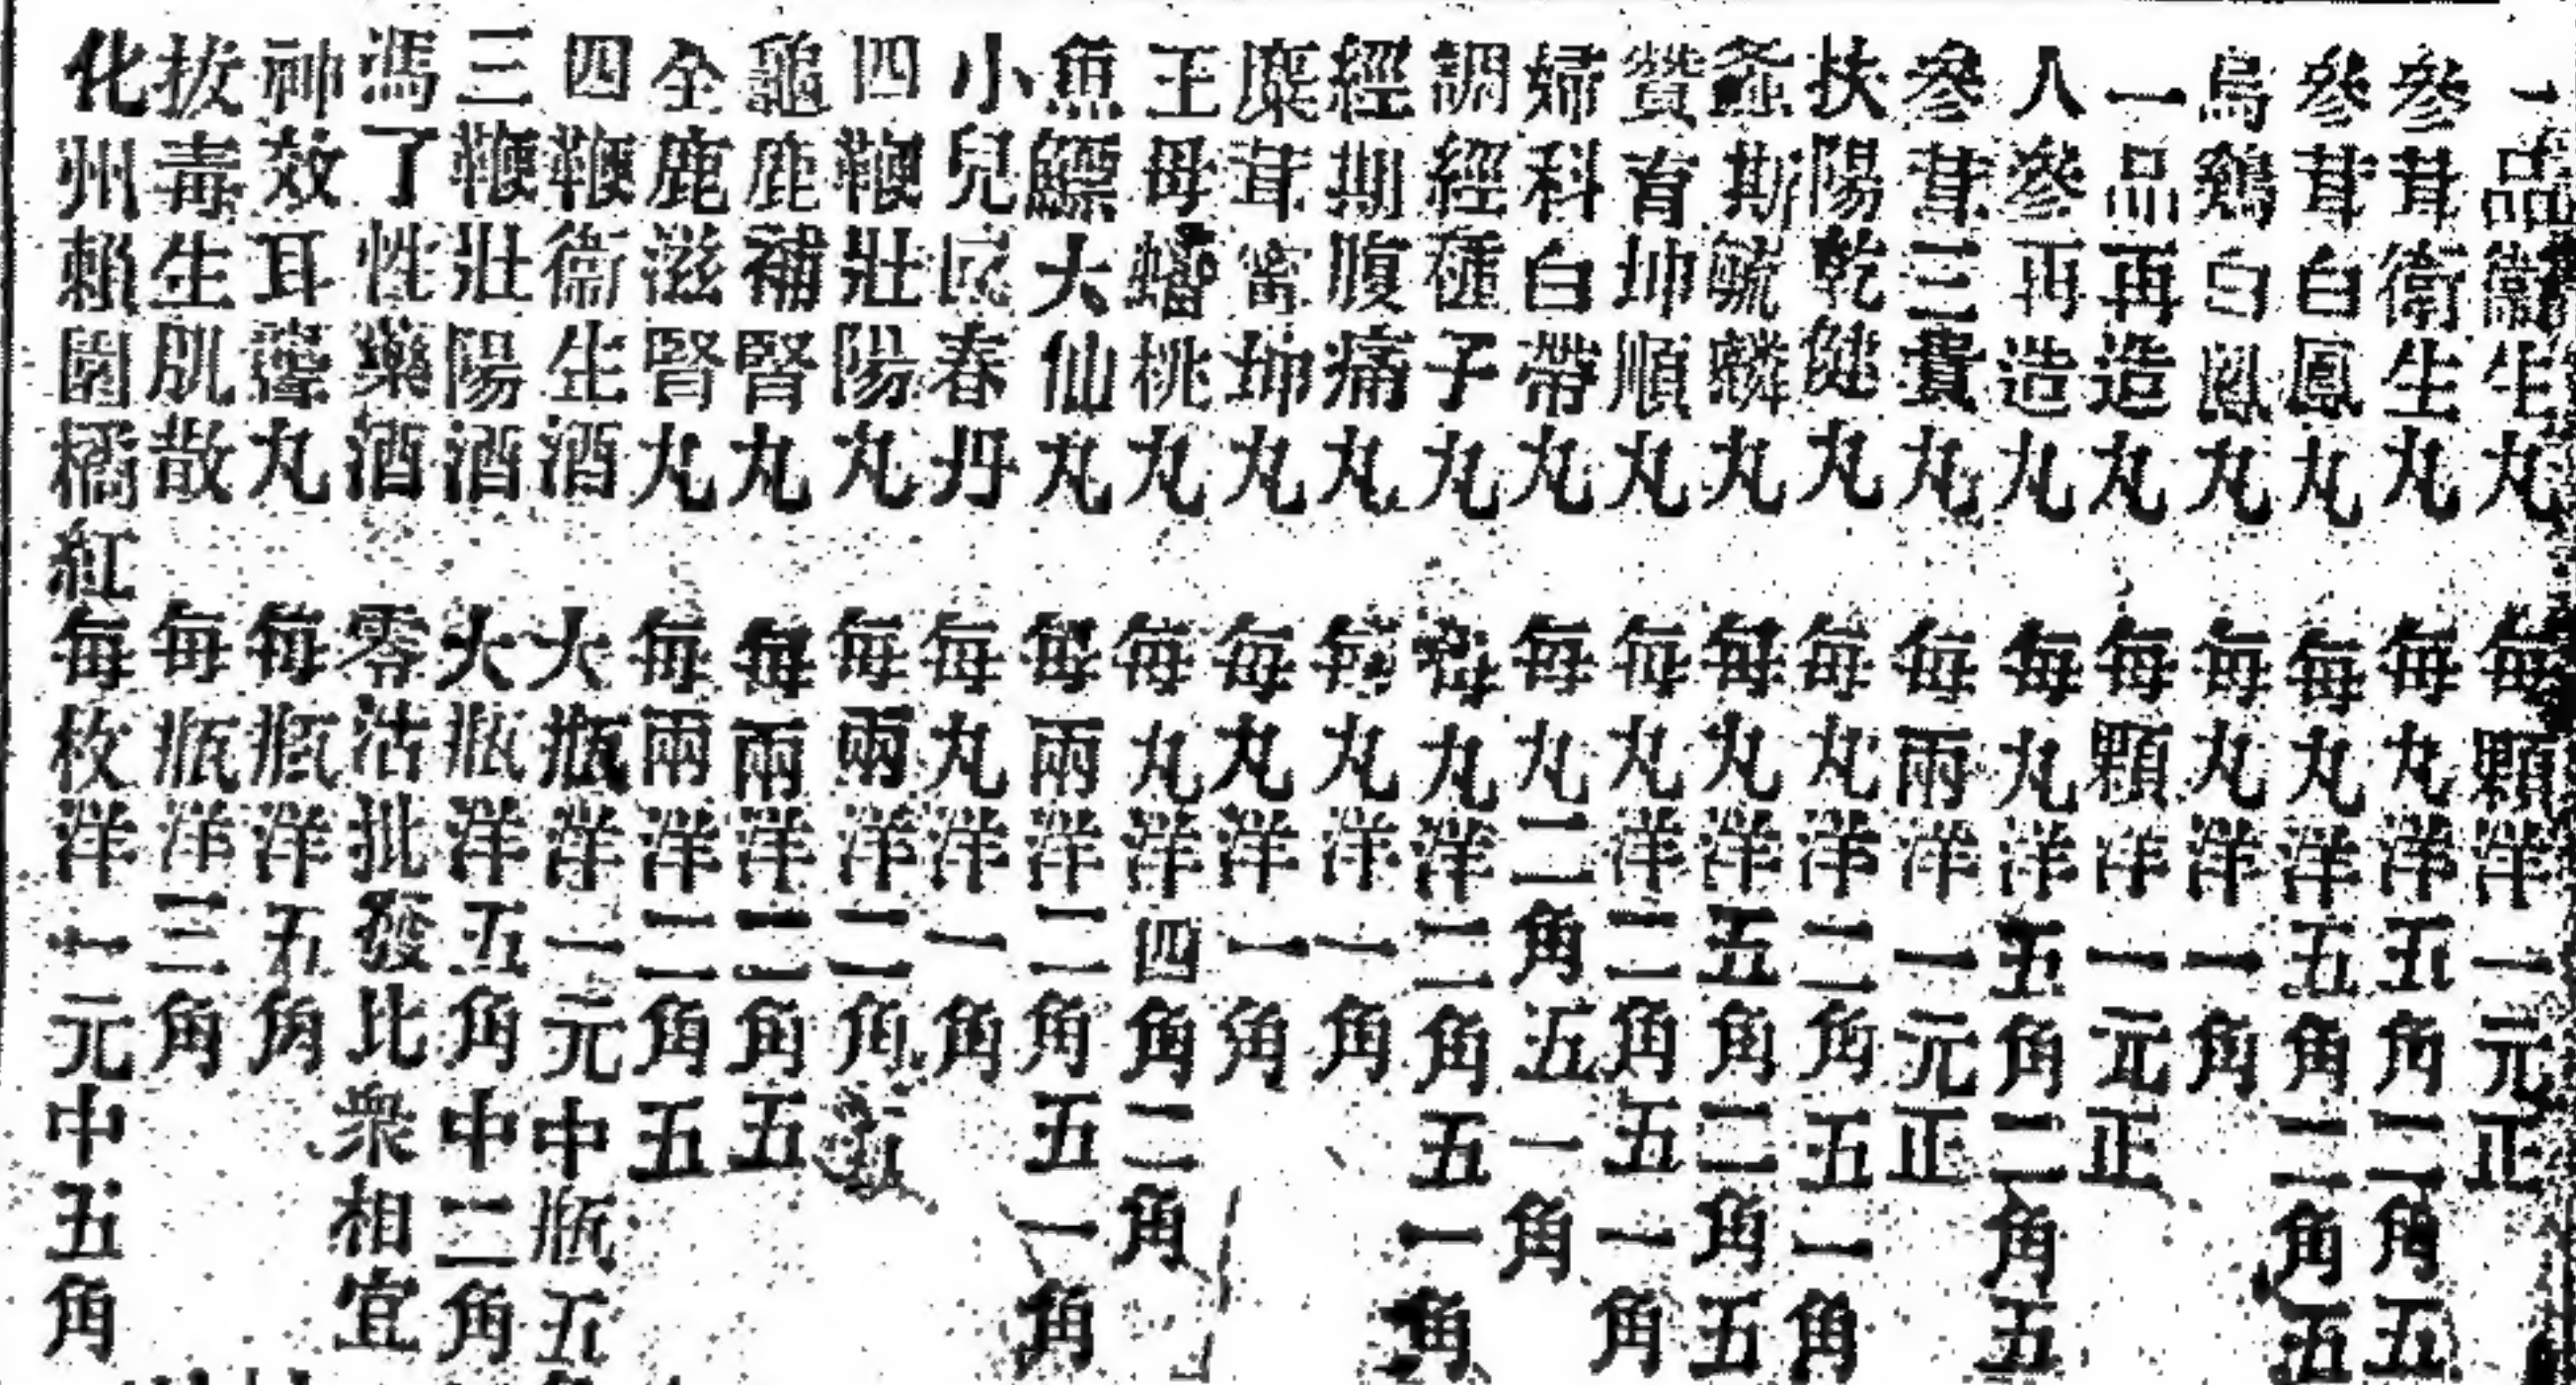 一品衞生丸 每顆洋一元正
參茸衛生丸 每丸洋五角二角五
參茸白鳳丸 每丸洋五角二角五
烏鷄白鳳丸 每丸洋一角
一品再造丸 每顆洋一元正
人參再造丸 每丸洋五角二角五
參茸三寶丸 每兩洋一元正
扶陽乾健丸 每丸洋二角五一角
螽斯毓麟丸 每丸洋五角二角五
贊育坤順丸 每丸洋二角五一角
婦科白帶丸 每丸二角五一角
調經種子丸 每丸洋二角五一角
經期腹痛丸 每丸洋一角
麋茸甯坤丸 每丸洋一角
王母蟠桃丸 每丸洋四角二角
魚鰾大仙丸 每兩洋二角五一角
小兒回春丹 每丸洋一角
四鞭壯陽丸 每兩洋二角五
龜鹿補腎丸 每兩洋二角五
全鹿滋腎丸 每兩洋二角五
四鞭衞生酒 大瓶洋一元中瓶五
三鞭壯陽酒 大瓶洋五角中二角
馮了性藥酒 零沽批發比衆相宜
神效耳聾丸 每瓶洋五角
拔毒生肌散 每瓶洋三角
化州賴園橘紅 每枚洋一元中五角